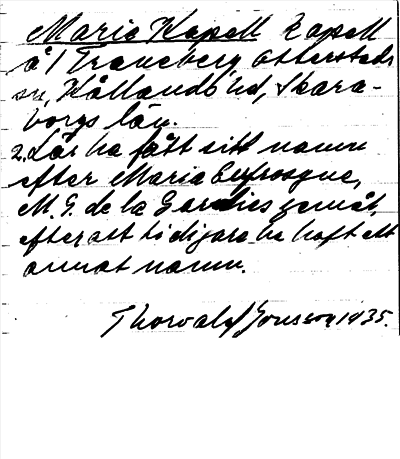 Marie Kapell kapell
å/ Traneberg, Otterstads
sn, Kållands hd, Skara-
borgs län.
2. Lär ha fått sitt namn
efter Maria Eufrosyne,
M. G. de la Gardies gemål,
efter att tidigare ha haft ett
annat namn.
Thorvald Jonsson 1935.